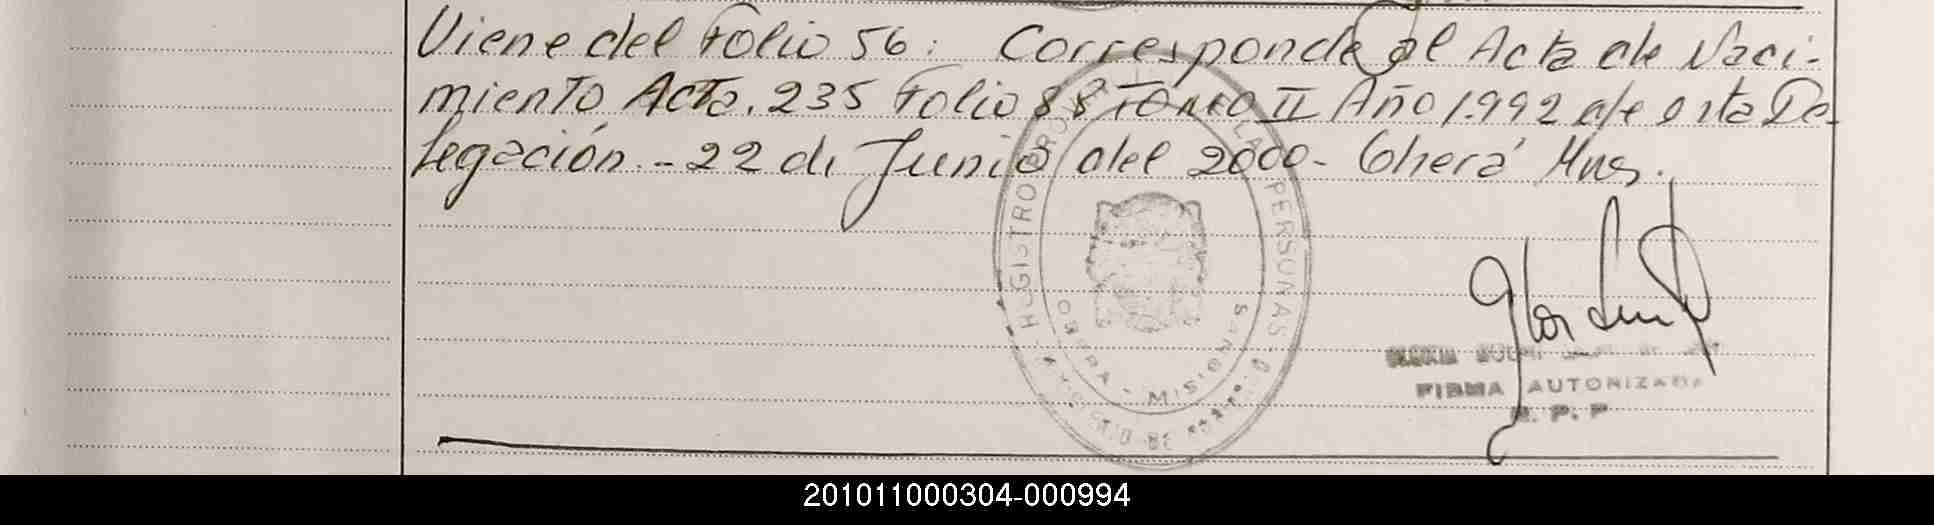 Viene del Folio 56: Corresponde al Acta de Naci-
miento Acta. 235 Folio 88 Tomo II Año 1.992 de esta De-
legación.- 22 de Junio del 2000- Oberá Mnes.
REGISTRO PROV. LA PERSONAS
OBERA - MISIONES
FIRMA AUTORIZADA
R. P. P
201011000304-000994